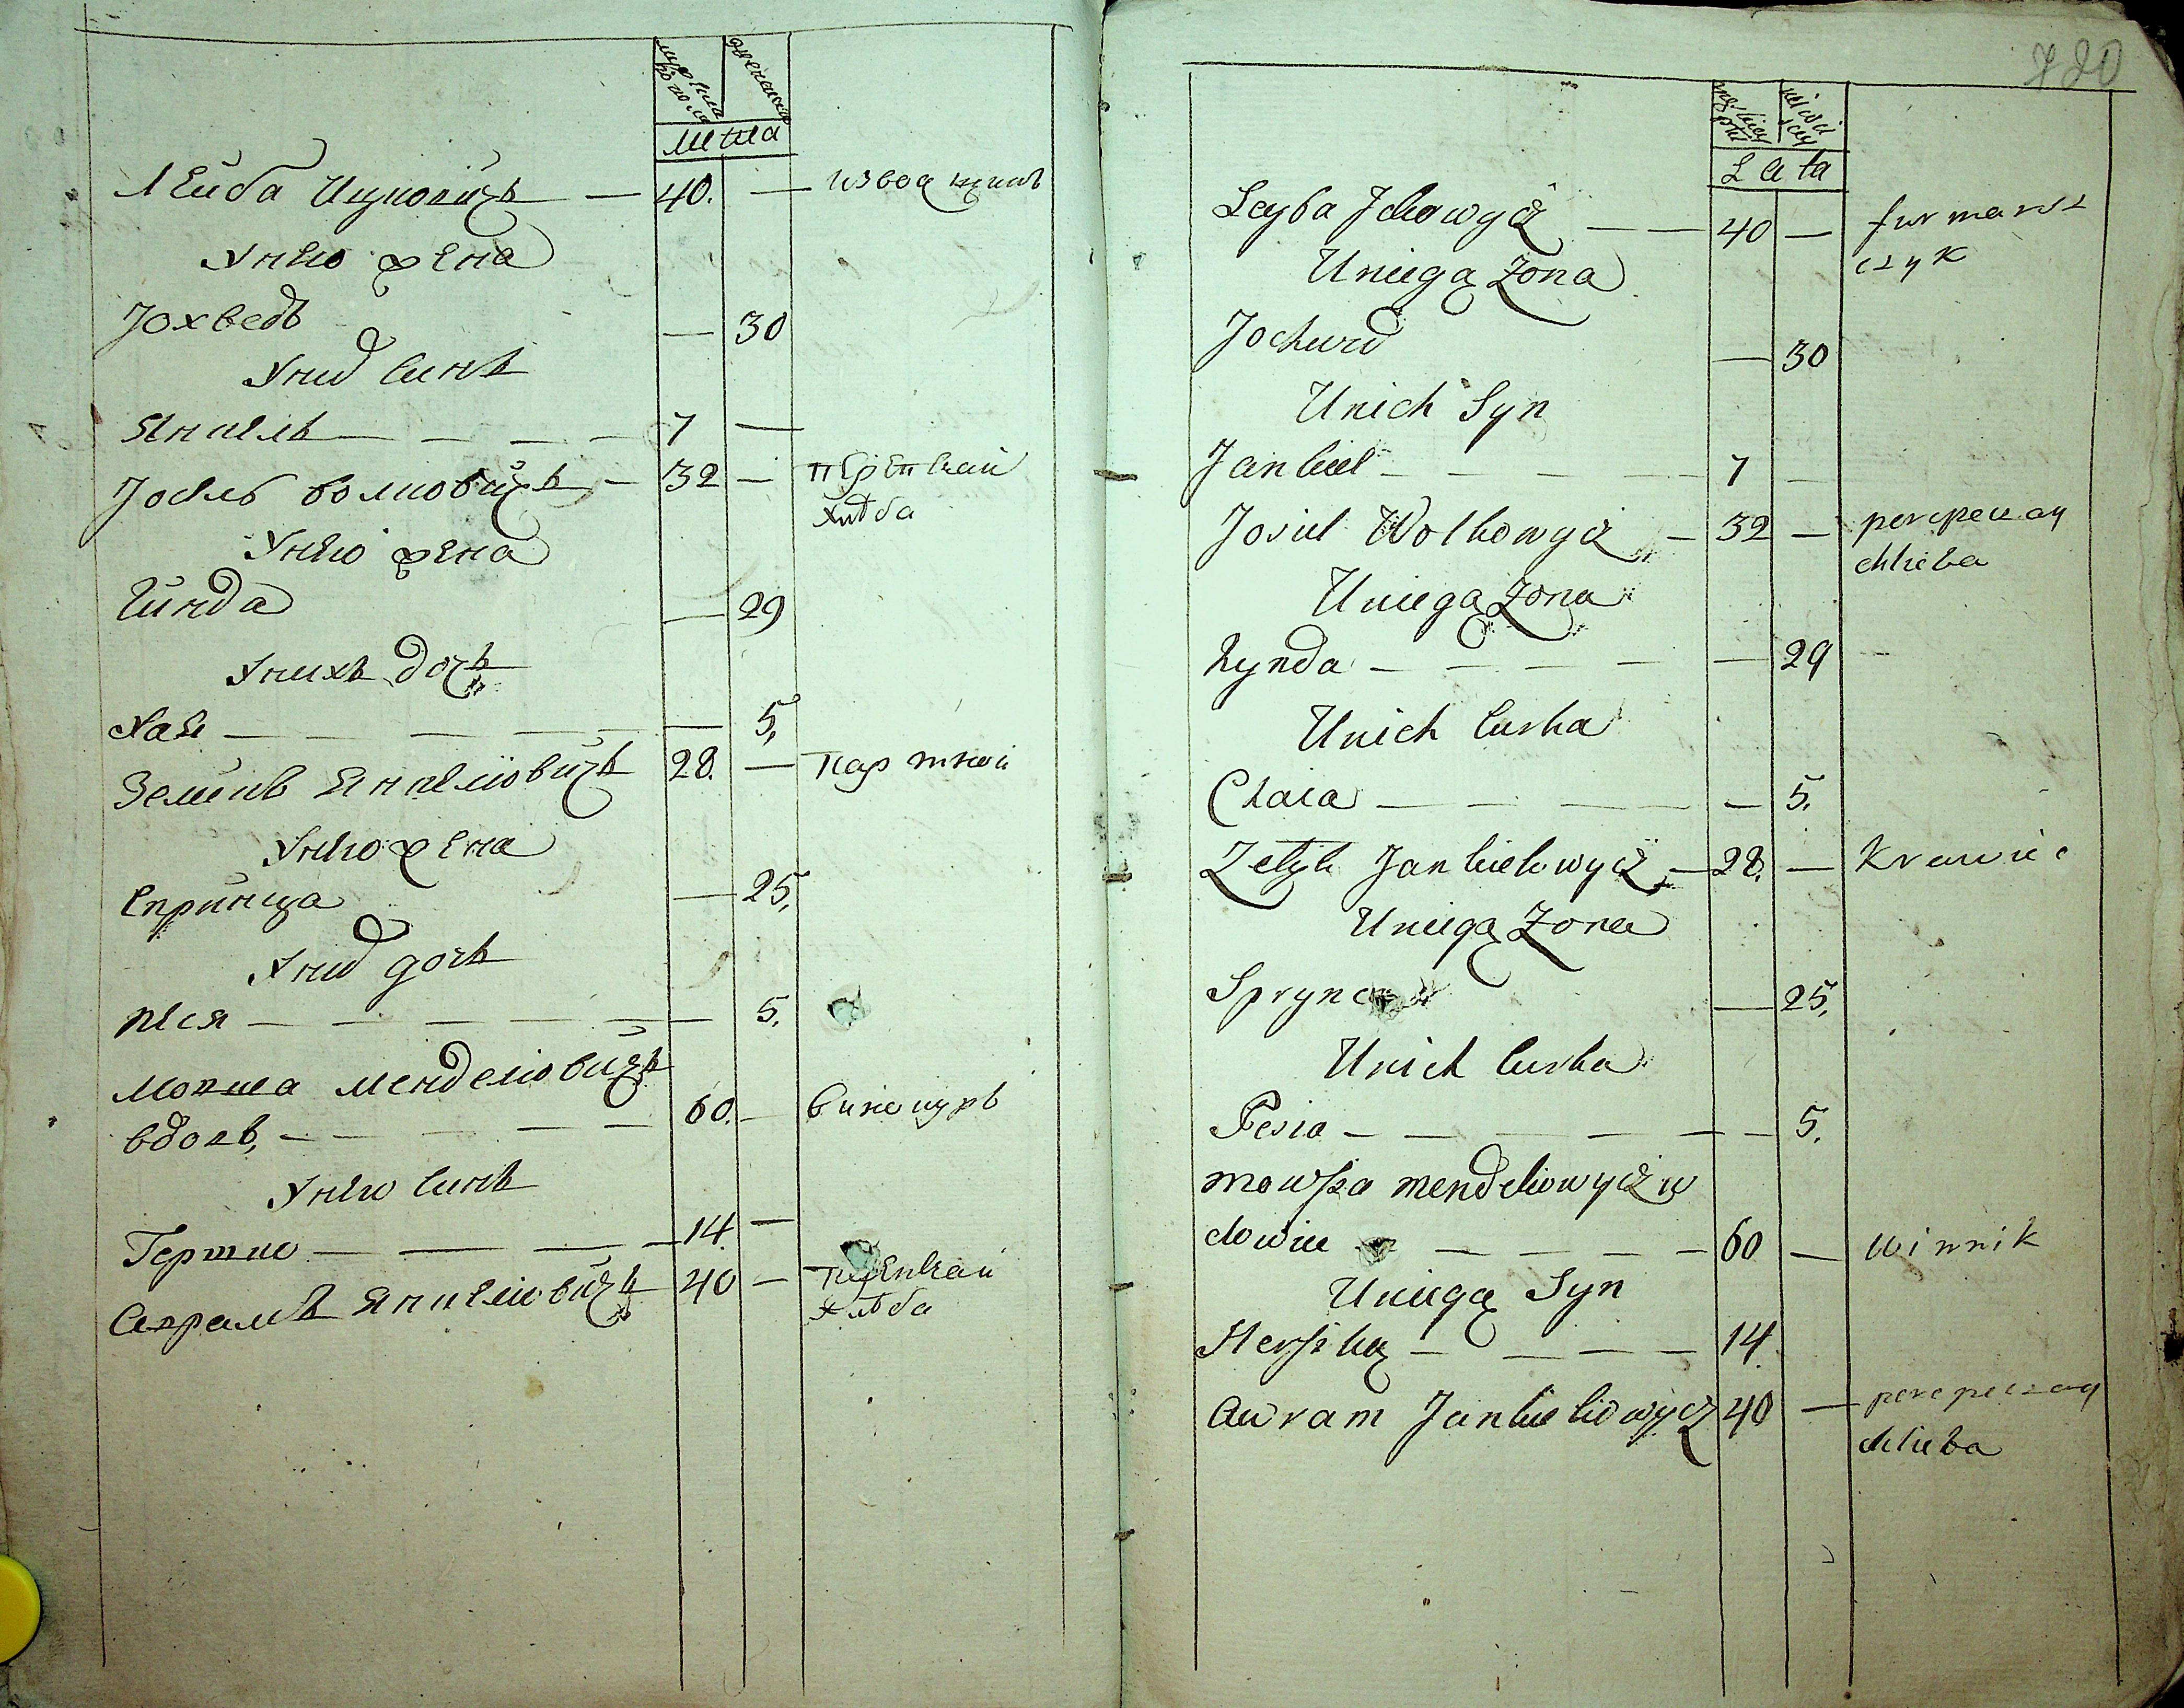 мужеска
пола
женска
лета
Лейба Ицковичъ — 40. — извощикъ
Унего жена
Іохведъ — 30
Уних синъ
Янкель — — — — 7 —
Іосель Волковичъ — 32 — перепечай
хлѣба
Унего жена
Гинда — 29
Унихъ дочь
Хая — — — — — 5,
Зеликъ Янкелiовичъ 28. — партной
Унего жена
Сприница — 25,
Уних дочь
Песя — — — — — 5.
Мовша Менделiовичъ
вдовъ, — — — — 60. — винокуръ
Унего синъ
Гершко — — — — 14. —
Аврамъ Янкелiовичъ 40 — перепечай
хлѣба
720
Lata
Leyba Ickowycz — — 40 — furmansz
czyk
Uniegą Zona
Jochwed — 30
Unich Syn
Jankiel — — — — 7 —
Josiel Wolkowycz — 32 — perepeczay
chlieba
Uniegą Zona
Hynda — — — — — 29 —
Unich Curka
Chaia — — — — — 5,
Zelyk Jankielowycz — 28. — Krawiec
Uniegą Zona
Sprynca — 25,
Unich Curka
Pesia — — — — — — 5.
Mowsza Mendeliowycz w
dowiec — — — — 60 — Winnik
Uniegą Syn
Herszko — — — — 14.
Awram Jankieliowycz 40 — perepeczay
chlieba